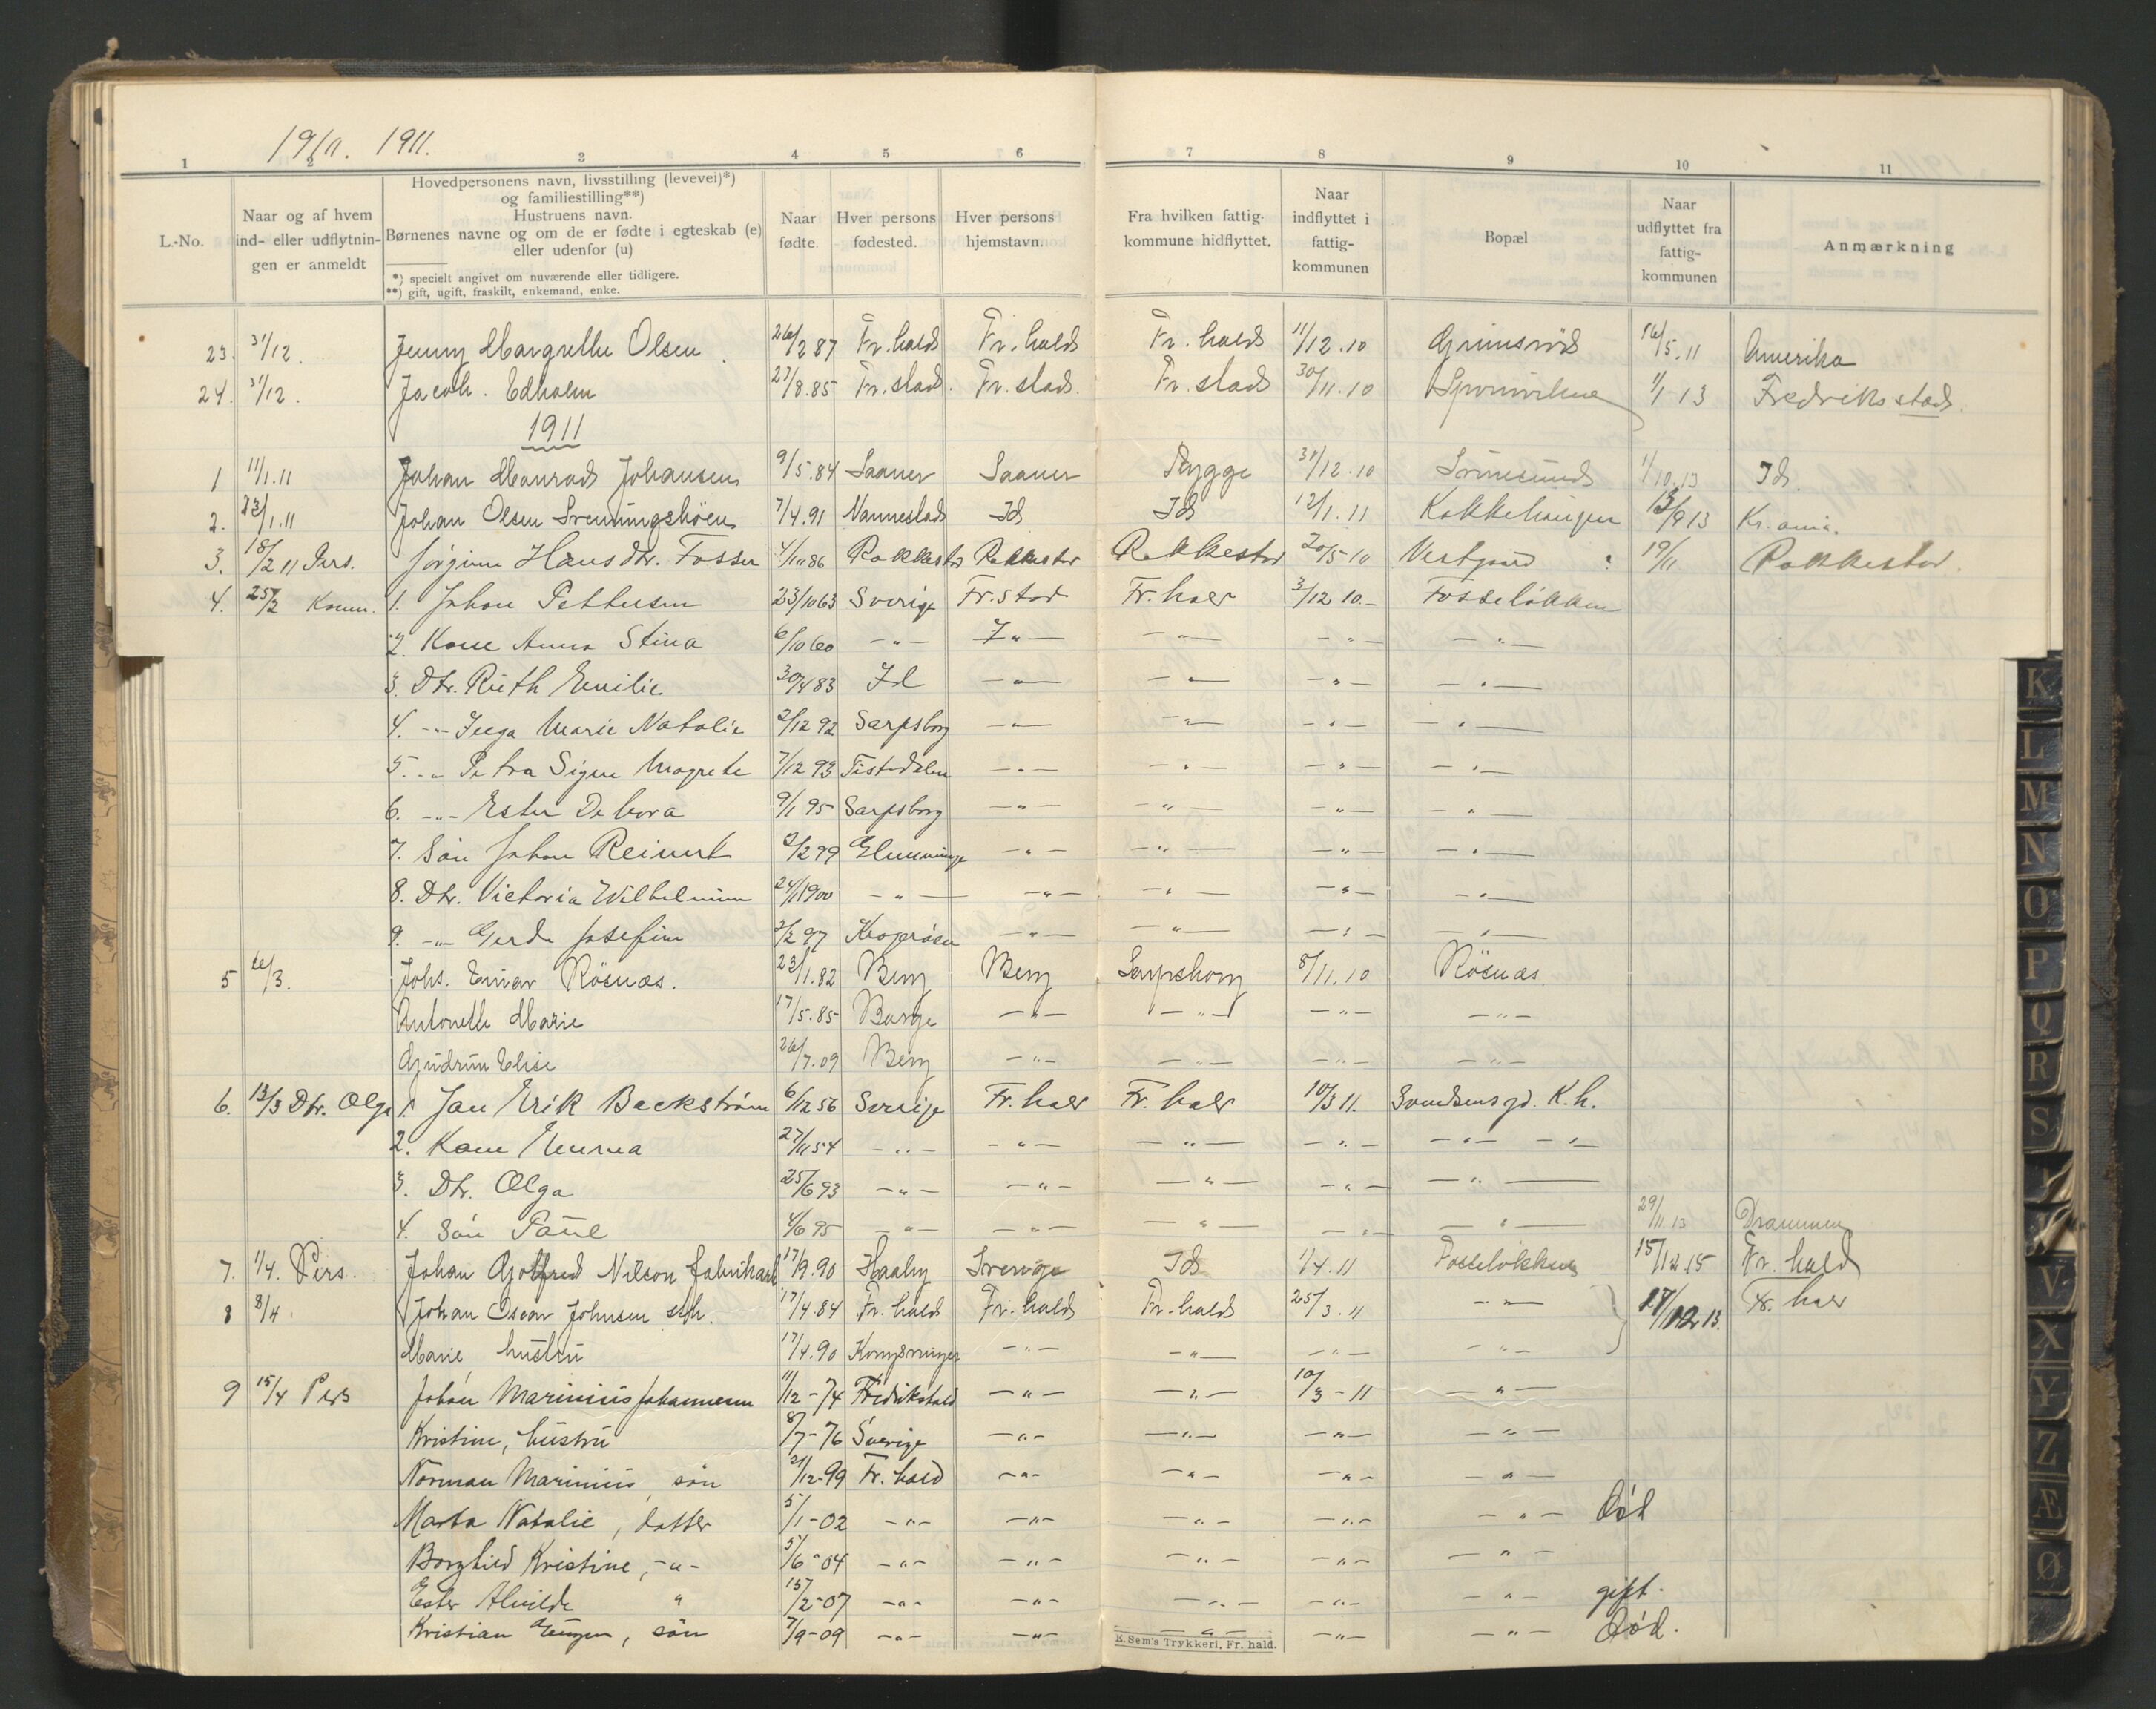 1910. 1911.
1 2 3 4 5 6 7 8 9 10 11
L.-No.
Naar og af hvem
ind- eller udflytnin-
gen er anmeldt
Hovedpersonens navn, livsstilling (levevei)*)
og familiestilling**)
Hustruens navn.
Børnenes navne og om de er fødte i egteskab (e)
eller udenfor (u)
*) specielt angivet om nuværende eller tidligere.
**) gift, ugift, fraskilt, enkemand, enke.
Naar
fødte.
Hver persons
fødested.
Hver persons
hjemstavn.
Fra hvilken fattig-
kommune hidflyttet.
Naar
indflyttet i
fattig-
kommunen
Bopæl
Naar
udflyttet fra
fattig-
kommunen
Anmærkning
23. 31/12. Jenny Margrethe Olsen. 26/2 87 Fr.hald Fr.hald Fr.hald 11/12.10 Grimsrød 16/5.11 Amerika
24. 31/12. Jacob. Edholm 23/8.85 Fr.stad. Fr.stad. Fr.stad 30/11.10 1/1 13 Fredriksstad.
1911
1 11/1.11 Johan Konrad Johansen 9/5.84 Saaner Saaner Rygge 31/12.10 1/10.13 Id.
2. 23/1.11 Johan Olsen 7/4.91 Nannestad Id Id 12/1.11 13/9 13 Kr.ania.
3. 18/2 11 Pers. Jørgine Hansdtr. Fosser 4/10 86 Rakkestad Rakkestad Rakkestad 20/5-10 Vestgaard 19/11 Rakkestad.
4. 25/2 Kom. 1. Johan Pettersen 23/10 63 Sverige Fr.stad Fr.hald 3/12 10.- Fosseløkken
2. Kone Anna Stina 6/10 60 -"- -"- -"- -"- -"-
3. Dtr. Ruth Emilie 30/4 83 Id -"- -"- -"- -"-
4. -"- Inga Marie Natalie 2/12 92 Sarpsborg -"- -"- -"- -"-
5. -"- Petra Signe Magrete 7/12 93 Tistedalen -"- -"- -"- -"-
6. -"- Ester Debora 9/1 95 Sarpsborg -"- -"- -"- -"-
7. Søn Johan Reinert 2/2 99 Glemminge -"- -"- -"- -"-
8. Dtr. Victoria Wilhelmine 24/1 1900 -"- -"- -"- -"- -"-
9. -"- Gerda Josefine 2/2 97 -"- -"- -"- -"-
5 /3. Johs. Einar Røsnæs. 23/1.82 Berg Berg Sarpsborg 8/11.10 Røsnæs.
Antonette Marie 17/5.85 Borge -"- -"- -"- -"-
Gudrun Elise 26/7.09 Berg -"- -"- -"- -"-
6. 13/3 Dtr. Olga 1. Jan Erik Backstrøm 6/12 56 Sverige Fr.hald Fr.hald 10/3 11. Svendsensgd. K.h.
2. Kone Emma 27/11 54 -"- -"- -"- -"- -"- -"-
3. Dtr. Olga 25/6 93 -"- -"- -"- -"- -"-
4. Søn Paul 4/6 95 -"- -"- -"- -"- -"- 29/11.13 Drammen
7. 1/4. Pers. Johan Gotfred Nilson fabrikarb 17/9.90 Haaby Sverige Id 1/4.11 Fosseløkken 15/12.15 Fr.hald
8 3/4. Johan Oscar Johnsen 17/4.84 Fr.hald Fr.hald Fr.hald 25/3.11 -"- 27/12 13. Fr.hald
Marie hustru 17/4.90 Kongsvinger -"- -"- -"- -"-
9 15/4 Pers Johan Marinius Johannesen 11/12-74 Fredrikshald -"- -"- 10/3-11 -"-
Kristine, hustru 8/7-76 Sverige -"- -"- -"- -"-
Norman Marinius, søn 21/12-99 Fr.hald -"- -"- -"- -"-
Marta Natalie, datter 5/1-02 -"- -"- -"- -"- -"- Død
Borghild Kristine, -"- 5/6-04 -"- -"- -"- -"- -"-
Ester Alvilde " 15/2-07 -"- -"- -"- -"- -"- gift.
Kristian Eugen, søn 7/9-09 -"- -"- -"- -"- -"- Død.
E. Sem's Trykkeri, Fr. hald.
K
L
M
N
O
P
Q
R
S
V
X
Y
Z
Æ
Ø